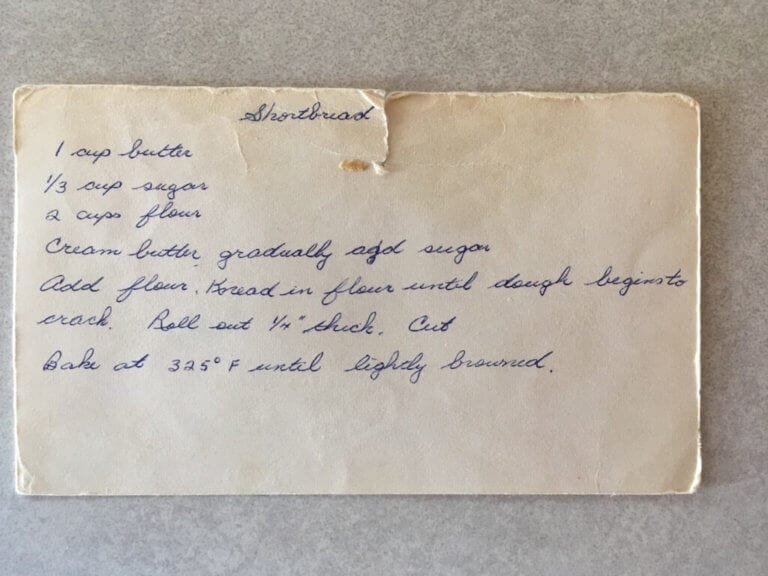 Shortbread
1 cup butter
1/3 cup sugar
2 cups flour
Cream butter, gradually add sugar
Add flour. Knead in flour until dough begins to
crack. Roll out 1/4" thick. Cut
Bake at 325° F until lightly browned.